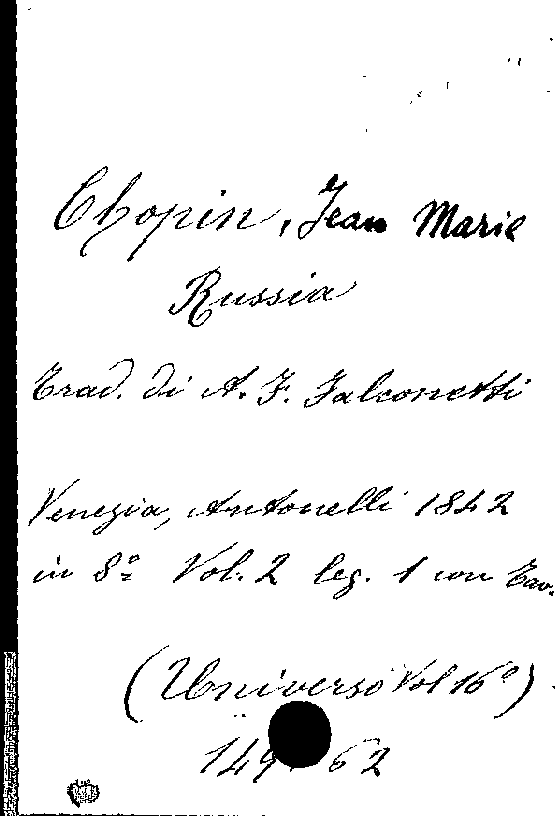 Chopin, Jean Marie
Russia
Trad. di A. F. Falconetti
Venezia, Antonelli 1842
in 8º Vol. 2 leg. 1 con Tav.
(Universo Vol 16º)
149 62